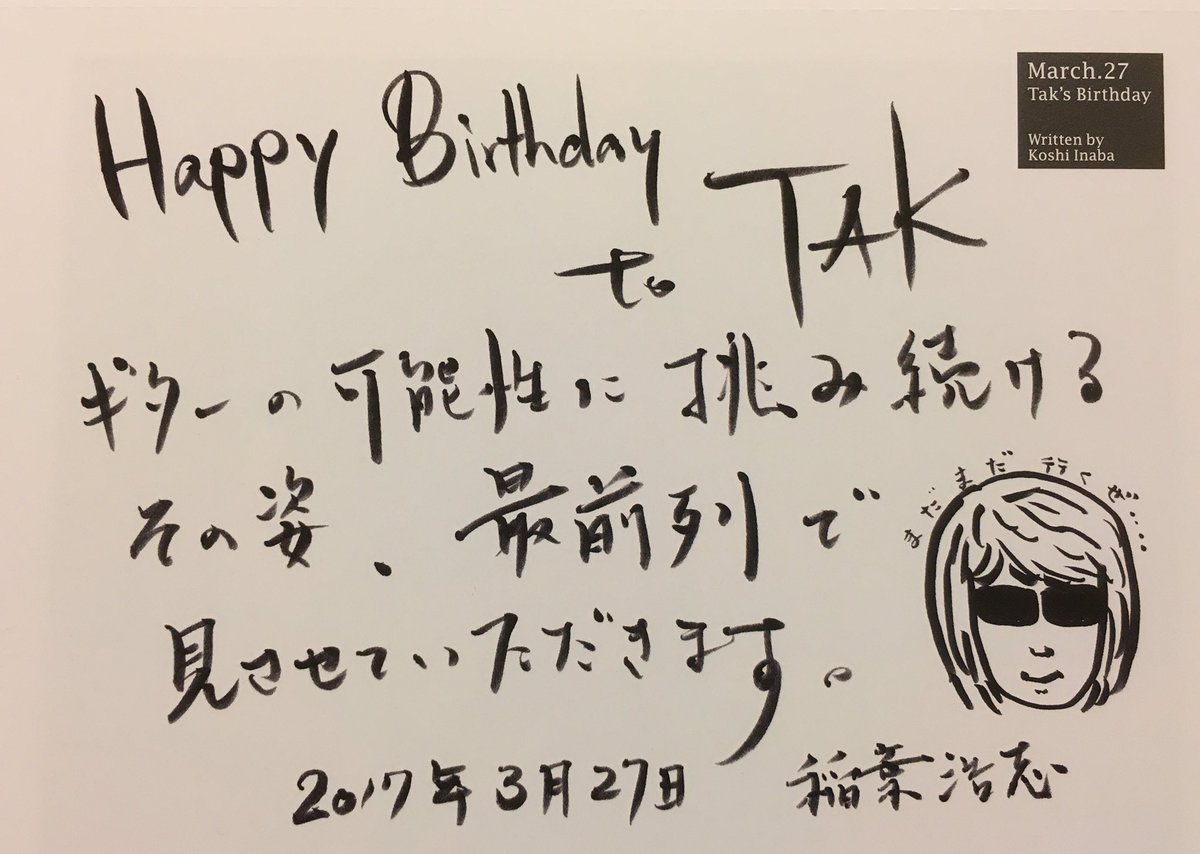 March.27
Tak's Birthday
Written by
Koshi Inaba
Happy Birthday
to TAK
ギターの可能性に挑み続ける
その姿、最前列で
見させていただきます。
まだまだ行くぜ....
2017年3月27日 稲葉浩志